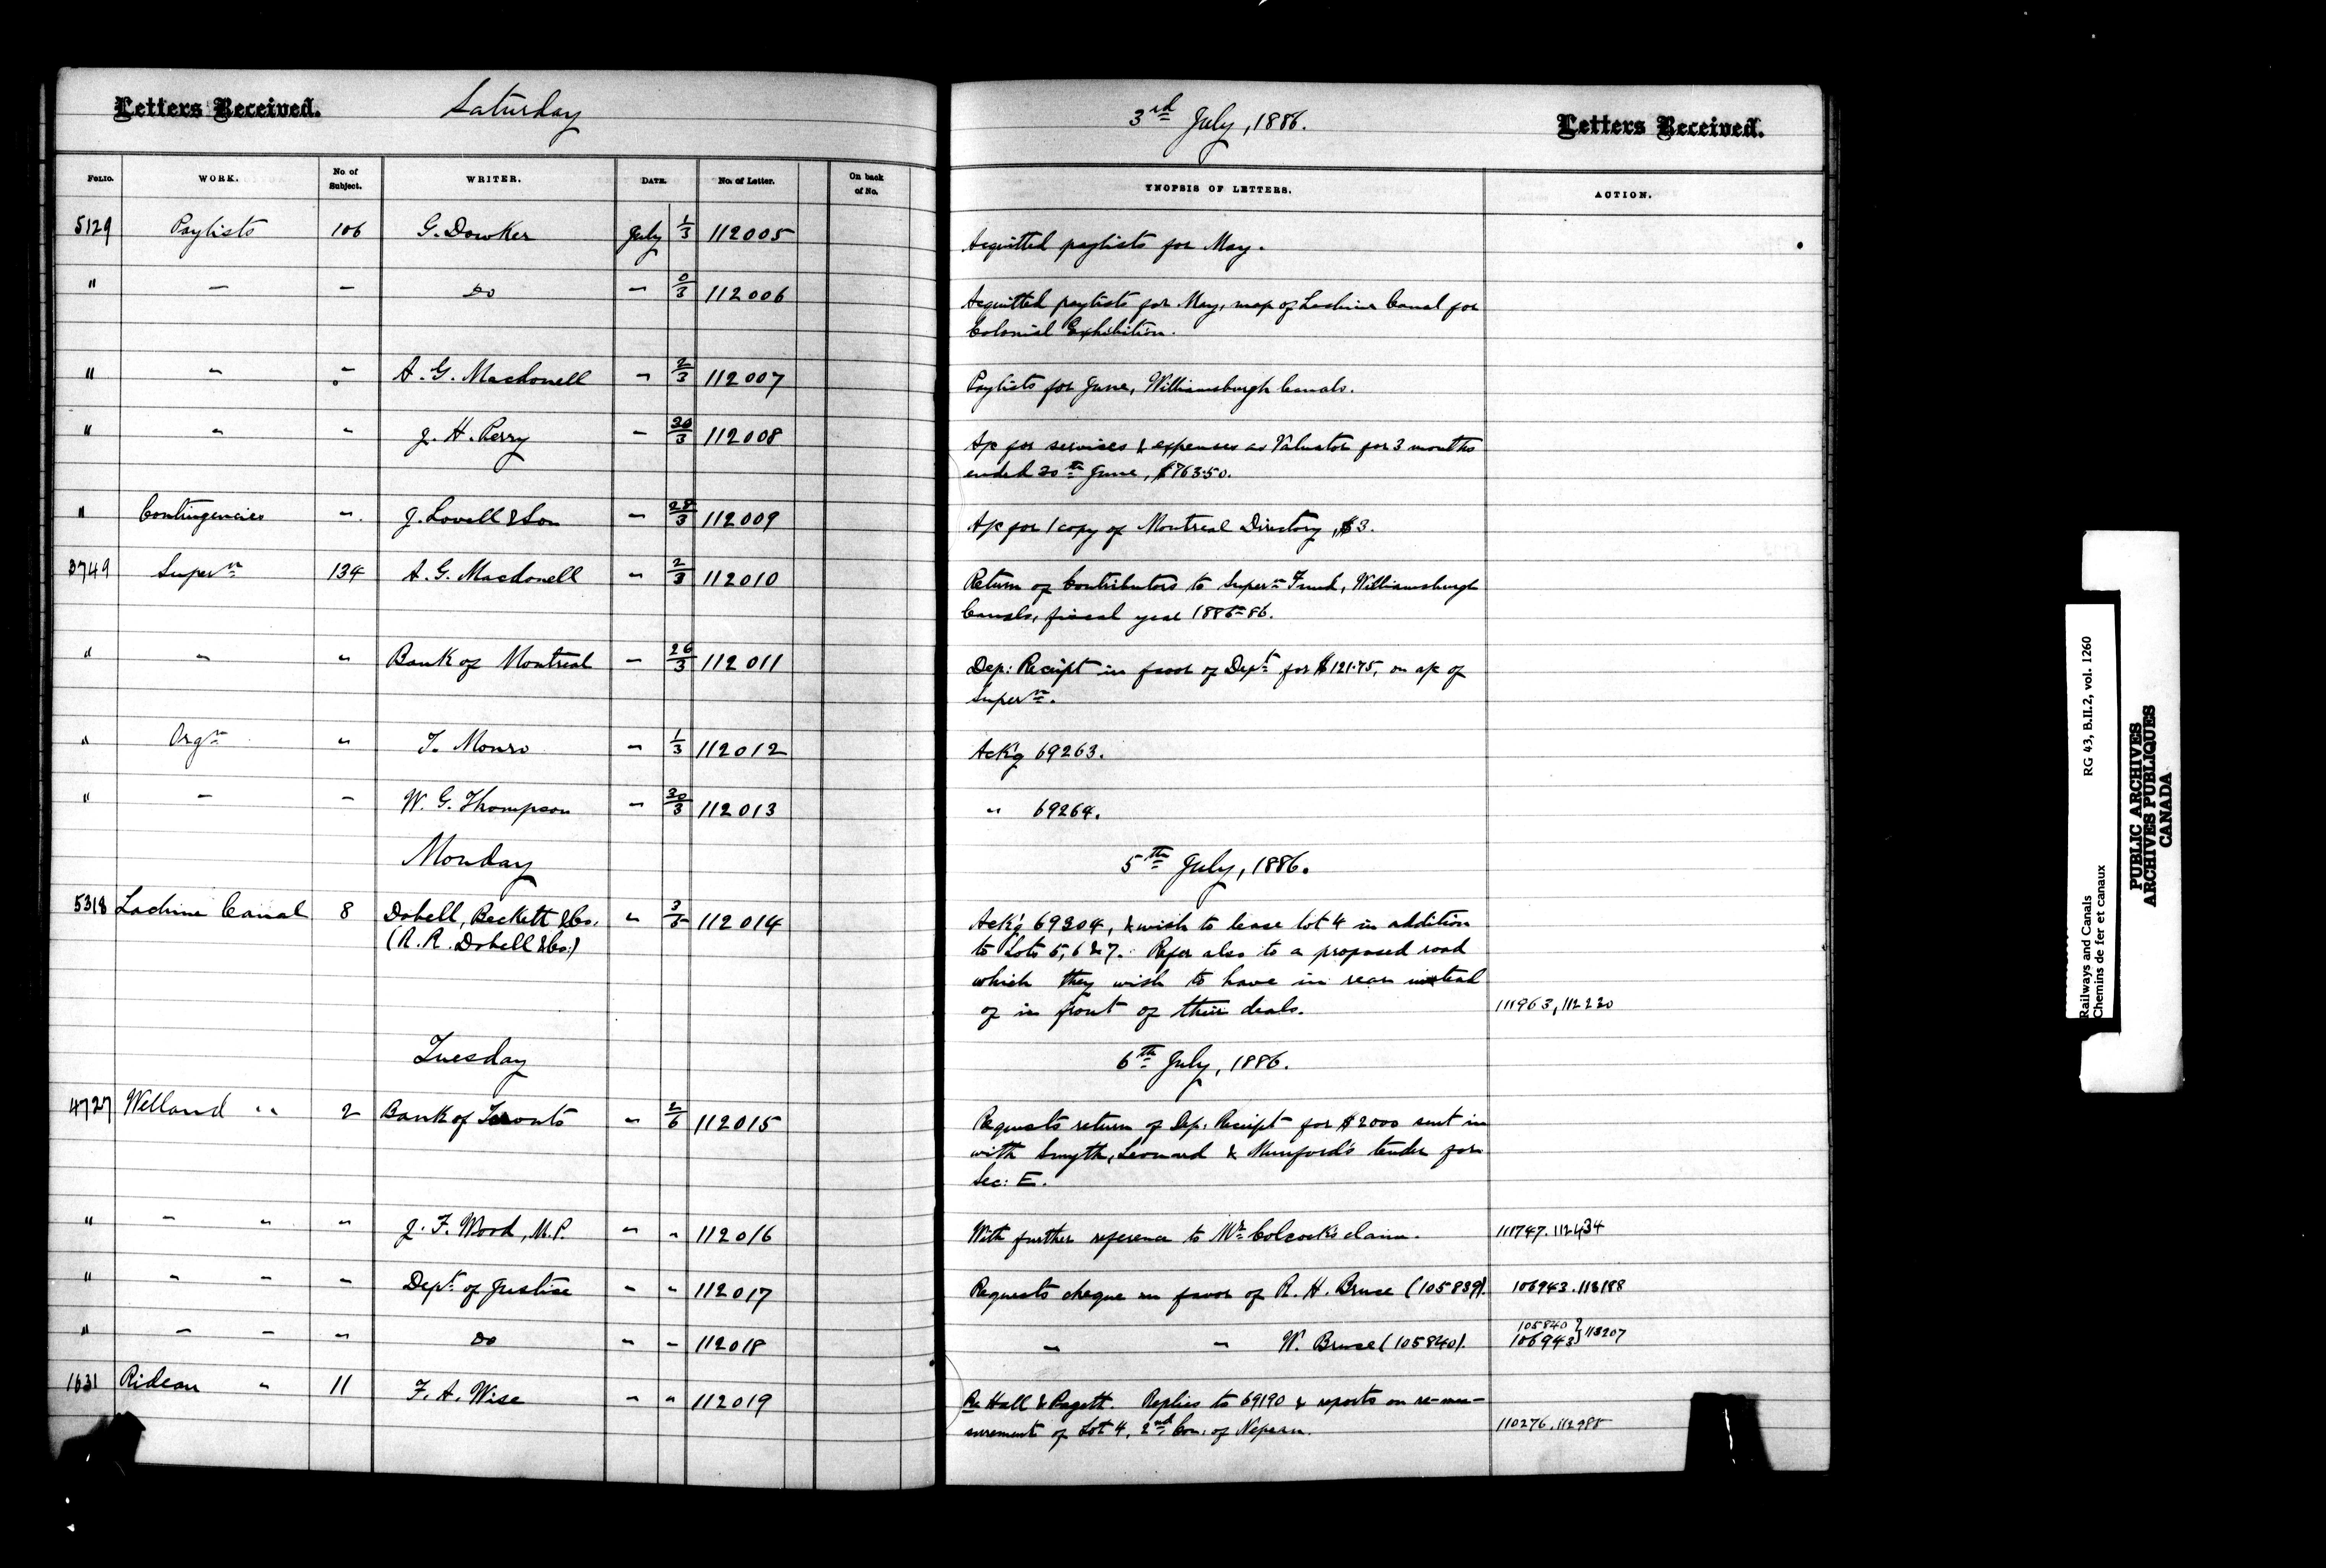 Letters Received. Saturday 3rd July, 1886. Letters Received.
FOLIO. WORK. No. of Subject. WRITER. DATE. No. of Letter. On back of No. YNOPSIS OF LETTERS. ACTION.
5129 Paylists 106 G. Dowker July 1/3 112005 Acquitted paylists for May.
" — — Do — 0/3 112006 Acquitted paylists for May, map of Lachine Canal for
Colonial Exhibition.
" " " A. G. Macdonell — 2/3 112007 Paylists for June, Williamsburgh Canals.
" " " J. H. Perry — 30/3 112008 A/c for services & expenses as Valuator for 3 months
ended 30th June, $763.50.
" Contingencies " J. Lovell & Son — 28/3 112009 A/c for 1 copy of Montreal Directory, $3.
3749 Supern 134 A. G. Macdonell " 2/3 112010 Return of Contributors to Supern Fund, Williamsburgh
Canals, fiscal year 1885-86.
" " " Bank of Montreal — 26/3 112011 Dep: Receipt in favor of Dept for $121.75, on a/c of
Supern.
" Orgn " T. Monro — 1/3 112012 Ackg 69263.
" — — W. G. Thompson — 30/3 112013 " 69264.
Monday 5th July, 1886.
5318 Lachine Canal 8 Dobell, Beckett & Co. " 3/5 112014 Ackg 69304, & wish to lease lot 4 in addition
(R. R. Dobell & Co.) to Lots 5, 6 & 7. Refer also to a proposed road
which they wish to have in rear instead
of in front of their deals. 111963, 112220
Tuesday 6th July, 1886.
4727 Welland " 2 Bank of Toronto " 2/6 112015 Requests return of Dep: Receipt for $2000 sent in
with Smyth, Leonard & Mumford's tender for
Sec: E.
" — " " J. F. Wood, M.P. " " 112016 With further reference to Mr Colcock's claim. 111747. 112434
" " — — Dept of Justice — " 112017 Requests cheque in favor of R. H. Bruce (105839). 106943. 113188
" — — " Do " — 112018 " " W. Bruce (105840). 105840 } 106943 } 113207
1631 Rideau " 11 F. A. Wise — " 112019 Re Hall & Pagett. Replies to 69190 & reports on re-mea-
surement of Lot 4, 2nd Con. of Nepean. 110276. 112985
Railways and Canals RG 43, B.II.2, vol. 1260
Chemins de fer et canaux
PUBLIC ARCHIVES
ARCHIVES PUBLIQUES
CANADA